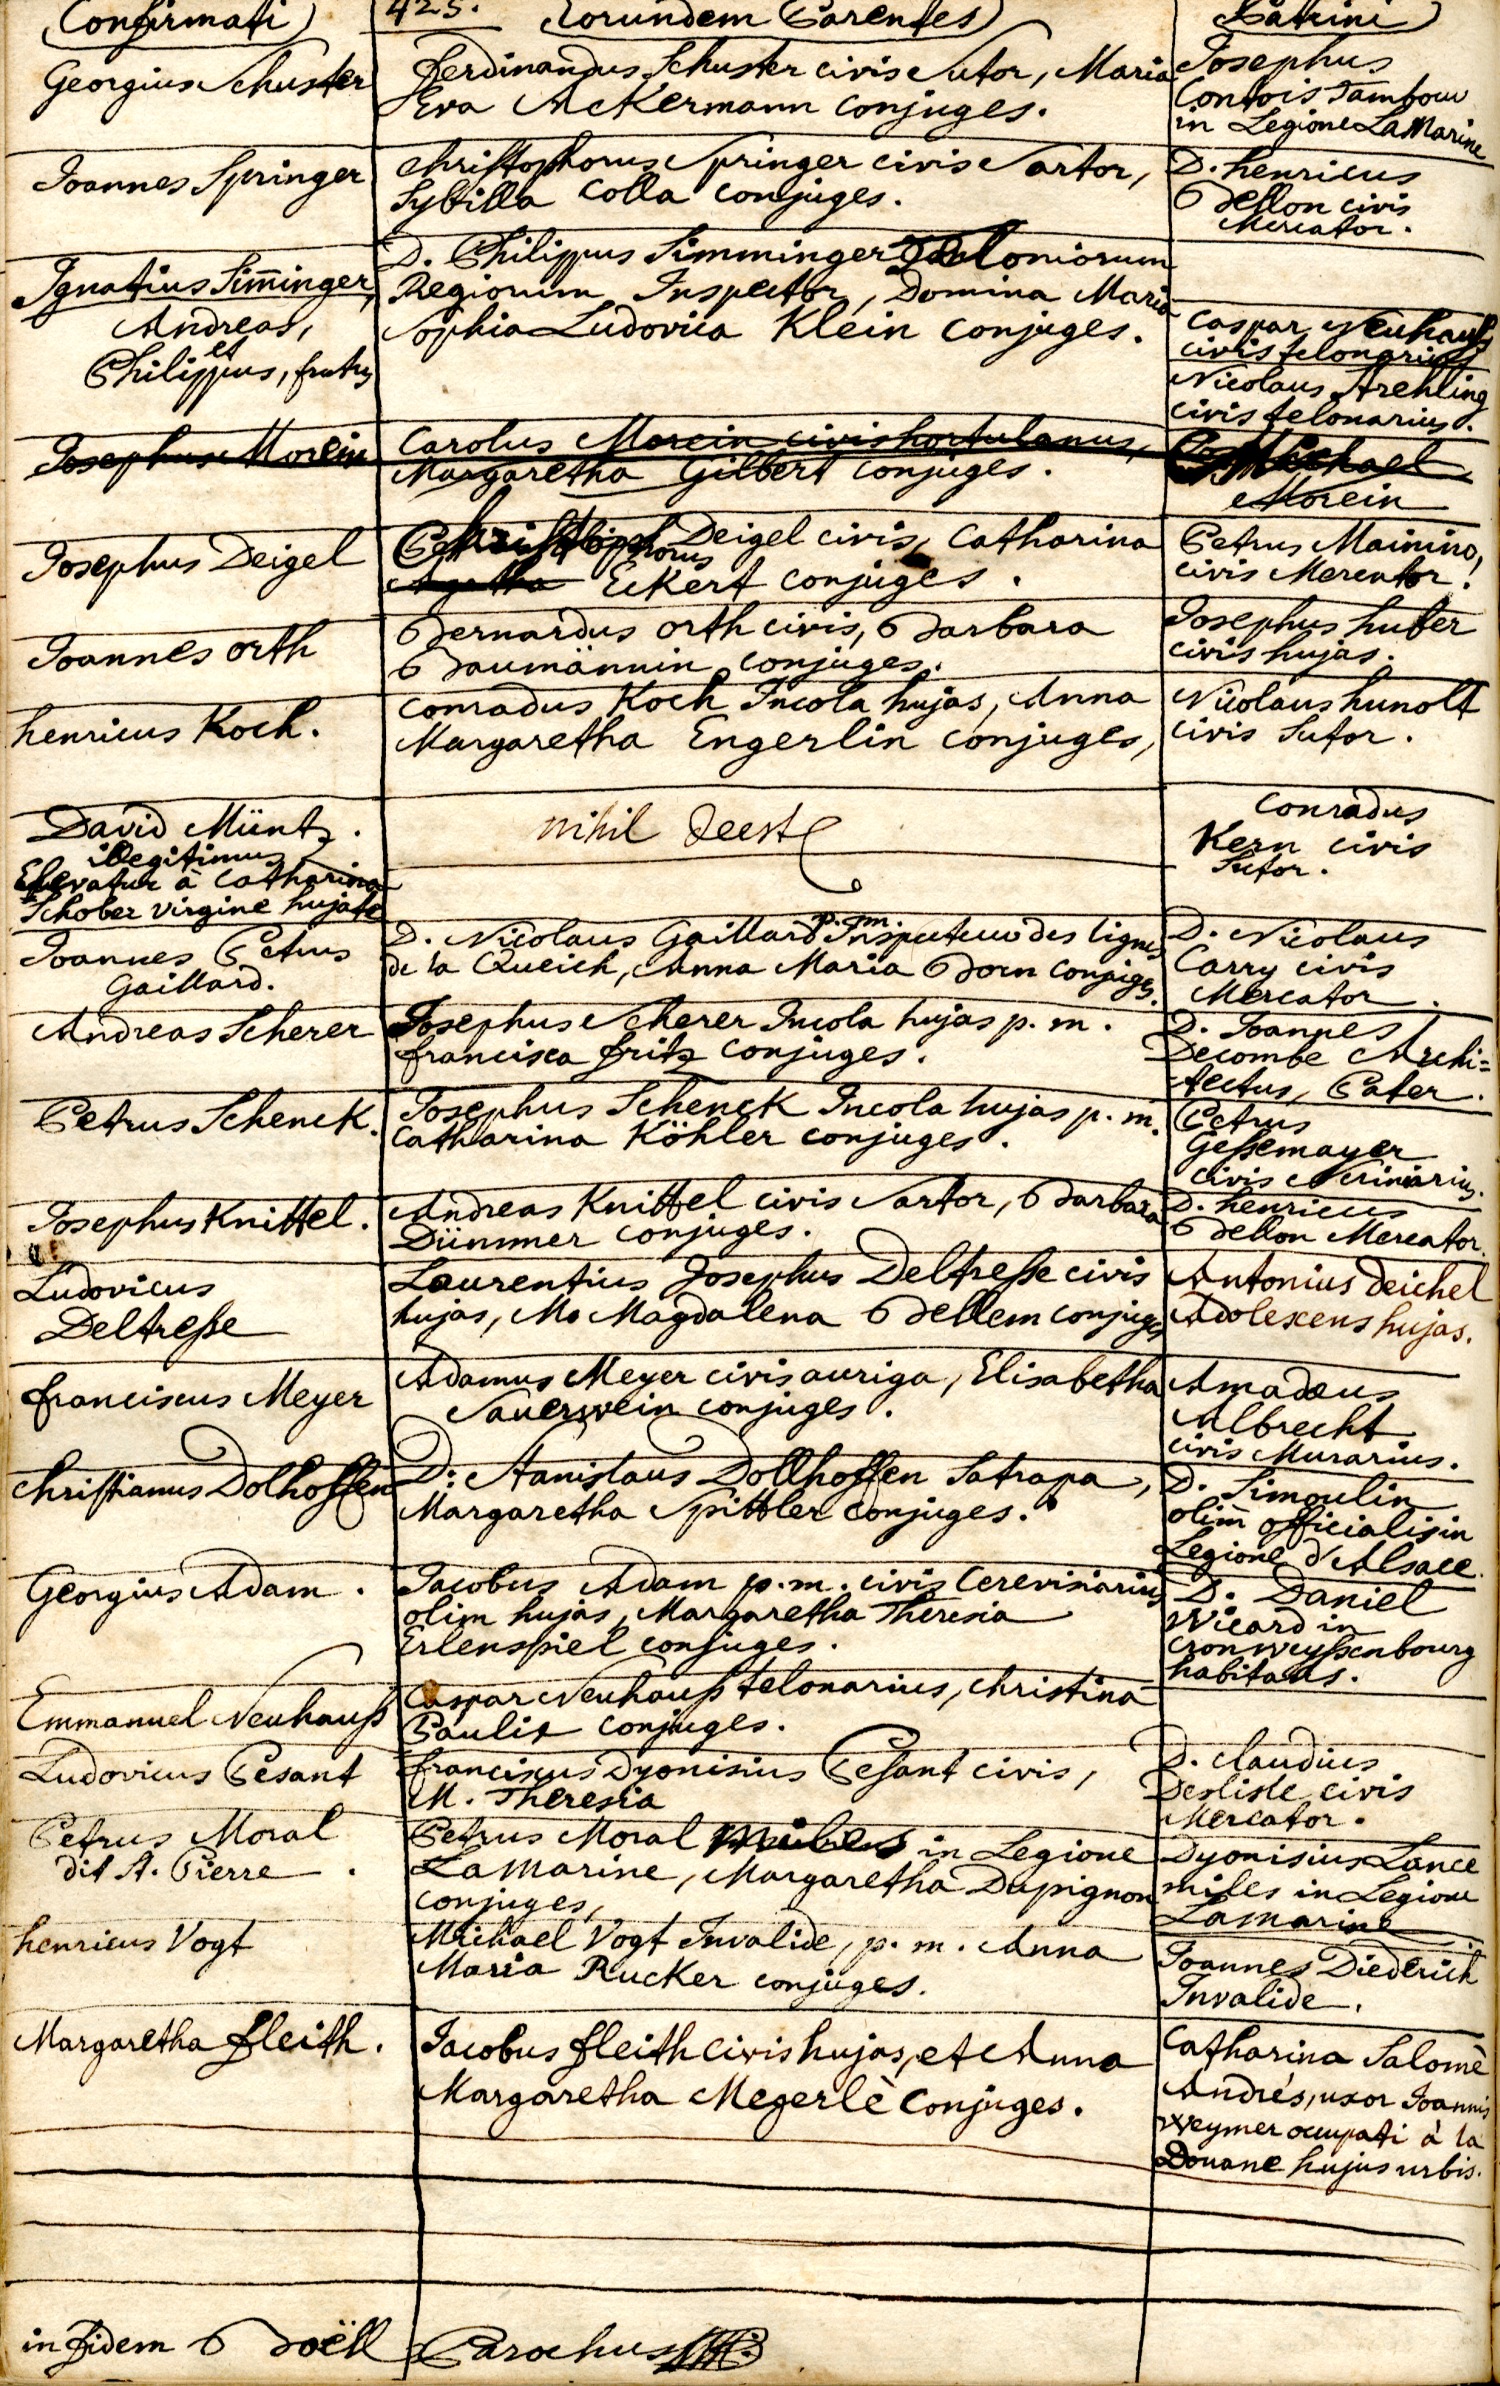 Confirmati
425.
Eorundem Parentes
Patrini
Georgius Schuster
Ferdinandus Schuster civis Sutor, Maria
Eva Ackermann conjuges.
Josephus
Contois Tambour
in Legione La Marine
Joannes Springer
Christophorus Springer civis Sartor,
Sybilla Colla conjuges.
D. henricus
Bellon civis
Mercator.
Ignatius Siminger,
Andreas,
et
Philippus, fratres
D. Philippus Simminger Teloniorum
Regiorum Inspector, Domina Maria
Sophia Ludovica Klein conjuges.
Caspar Neuhauß
civis telonarius
Nicolaus Arehling
civis telonarius.
Josephus Morein
Carolus Morein civis hortulanus,
Margaretha Gilbert conjuges.
Michael
Morein
Josephus Deigel
Christophorus Deigel civis, Catharina
Agatha Eckert conjuges.
Petrus Mainino,
civis Mercator!
Joannes orth
Bernardus orth civis, Barbara
Baumännin conjuges.
Josephus huber
civis hujas.
henricus Koch.
Conradus Koch Incola hujas, Anna
Margaretha Engerlin conjuges,
Nicolaus hunolt
civis Sutor.
David Müntz.
illegitimus
Elevatur à Catharina
Schober virgine hujate
nihil deest
Conradus
Kern civis
Sutor.
Joannes Petrus
Gaillard.
p. m.
D. Nicolaus Gaillard Inspecteur des lignes
de la Queich, Anna Maria Born conjuges.
D. Nicolaus
Carry civis
Mercator.
Andreas Scherer
Josephus Scherer Incola hujas p. m.
francisca fritz conjuges.
D. Joannes
Decombe Archi=
tectus, Pater.
Petrus Schenck.
Josephus Schenck Incola hujas p. m.
Catharina Köhler conjuges.
Petrus
Geßemayer
civis Scriniarius.
Josephus Knittel.
Andreas Knittel civis Sartor, Barbara
Dümmer conjuges.
D. henricus
Bellon Mercator.
Ludovicus
Deltreße
Laurentius Josephus Deltreße civis
hujas, Ma Magdalena Bellem conjuges
Antonius Deichel
Adolescens hujas.
franciscus Meyer
Adamus Meyer civis auriga, Elisabetha
Sauerwein conjuges.
Amadeus
Albrecht
civis Murarius.
Christianus Dolhoffen
D: Stanislaus Dollhoffen Satrapa,
Margaretha Spittler conjuges.
D. Simoulin
olim officialis in
Legione d'Alsace.
Georgius Adam.
Jacobus Adam p. m. civis Cerevisiarius
olim hujas, Margaretha Theresia
Erlenspiel conjuges.
D. Daniel
Wicard in
Cronweyssenbourg
habitans.
Emmanuel Neuhauß
Caspar Neuhauß telonarius, Christina
Paulis conjuges.
Ludovicus Pesant
franciscus Dyonisius Pesant civis,
M. Theresia
D. Claudius
Deslisle civis
Mercator.
Petrus Moral
dit St. Pierre.
Petrus Moral miles in Legione
La Marine, Margaretha Dupignon
conjuges,
Dyonisius Lance
miles in Legione
La marine
henricus Vogt
Michael Vogt Invalide, p. m. Anna
Maria Rucker conjuges.
Joannes Diederich
Invalide.
Margaretha fleith.
Jacobus fleith civis hujas, et Anna
Margaretha Megerlè conjuges.
Catharina Salomè
Andrés, uxor Joannis
Weymer occupati à la
Douane hujus urbis.
in fidem Boëll Parochus